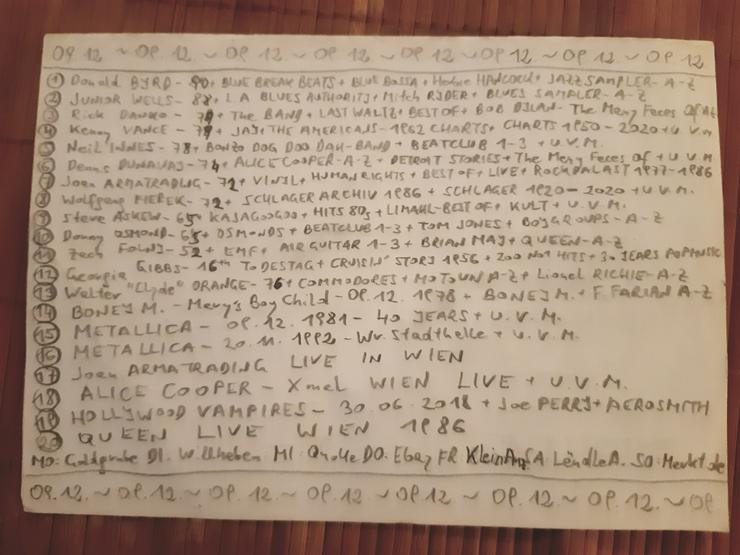 09.12. ~ 09.12. ~ 09.12. ~ 09.12. ~ 09.12. ~ 09.12 ~ 09.12. ~ 09.12
① Donald BYRD - 90 + BLUE BREAK BEATS + BLUE BOSSA + Herbie HANCOCK + JAZZ SAMPLER - A-Z
② JUNIOR WELLS - 88 + L.A BLUES AUTHORITY + Mitch RYDER + BLUES SAMPLER - A-Z
③ Rick DANKO - 79 + THE BAND + LAST WALTZ + BEST OF + BOB DYLAN - The Many Faces OF A-Z
④ Kenny VANCE - 79 + JAY + THE AMERICANS - 1962 CHARTS + CHARTS 1950 - 2020 + U.V.M
⑤ Neil INNES - 78 + BONZO DOG DOO DAH-BAND + BEATCLUB 1-3 + U.V.M.
⑥ Dennis DUNAWAY - 74 + ALICE COOPER - A-Z + DETROIT STORIES + The Many Faces OF + U.V.M
⑦ Joan ARMATRADING - 72 + VINYL + HUMAN RIGHTS + BEST OF + LIVE + ROCKPALAST 1977-1986
⑧ Wolfgang - 72 + SCHLAGER ARCHIV 1986 + SCHLAGER 1920 - 2020 + U.V.M.
⑨ Steve ASKEW - 65 + KAJAGOOGOO + HITS 80s + LIMAHL - BEST OF + KULT + U.V.M.
⑩ Donny OSMOND - 65 + OSMONDS + BEATCLUB 1-3 + TOM JONES + BOYGROUPS - A-Z
⑪ Zach FOLEY - 52 + EMF + AIR GUITAR 1-3 + BRIAN MAY + QUEEN - A-Z
⑫ Georgia GIBBS - 16th TODESTAG + CRUISIN' STORY 1956 + 200 No1 HITS + 30 YEARS POPMUSIC
⑬ Walter "Clyde" ORANGE - 76 + COMMODORES + MOTOWN A-Z + Lionel RICHIE - A-Z
⑭ BONEY M. - Mary's Boy Child - 09.12. 1978 + BONEY M. + F. FARIAN A-Z
⑮ METALLICA - 09.12. 1981 - 40 YEARS + U.V.M.
⑯ METALLICA - 20.11. 1992 - Wr. Stadthalle + U.V.M.
⑰ Joan ARMATRADING LIVE IN WIEN
⑱ ALICE COOPER - Xmal WIEN LIVE + U.V.M.
⑲ HOLLYWOOD VAMPIRES - 30.06.2018 + Joe PERRY + AEROSMITH
⑳ QUEEN LIVE WIEN 1986
MO: Goldgrube DI. Willhaben MI: Quoka DO. Ebay FR KleinAnz SA LändleA. SO: Markt.de
09.12. ~ 09.12. ~ 09.12. ~ 09.12. ~ 09.12. ~ 09.12. ~ 09.12. ~ 09